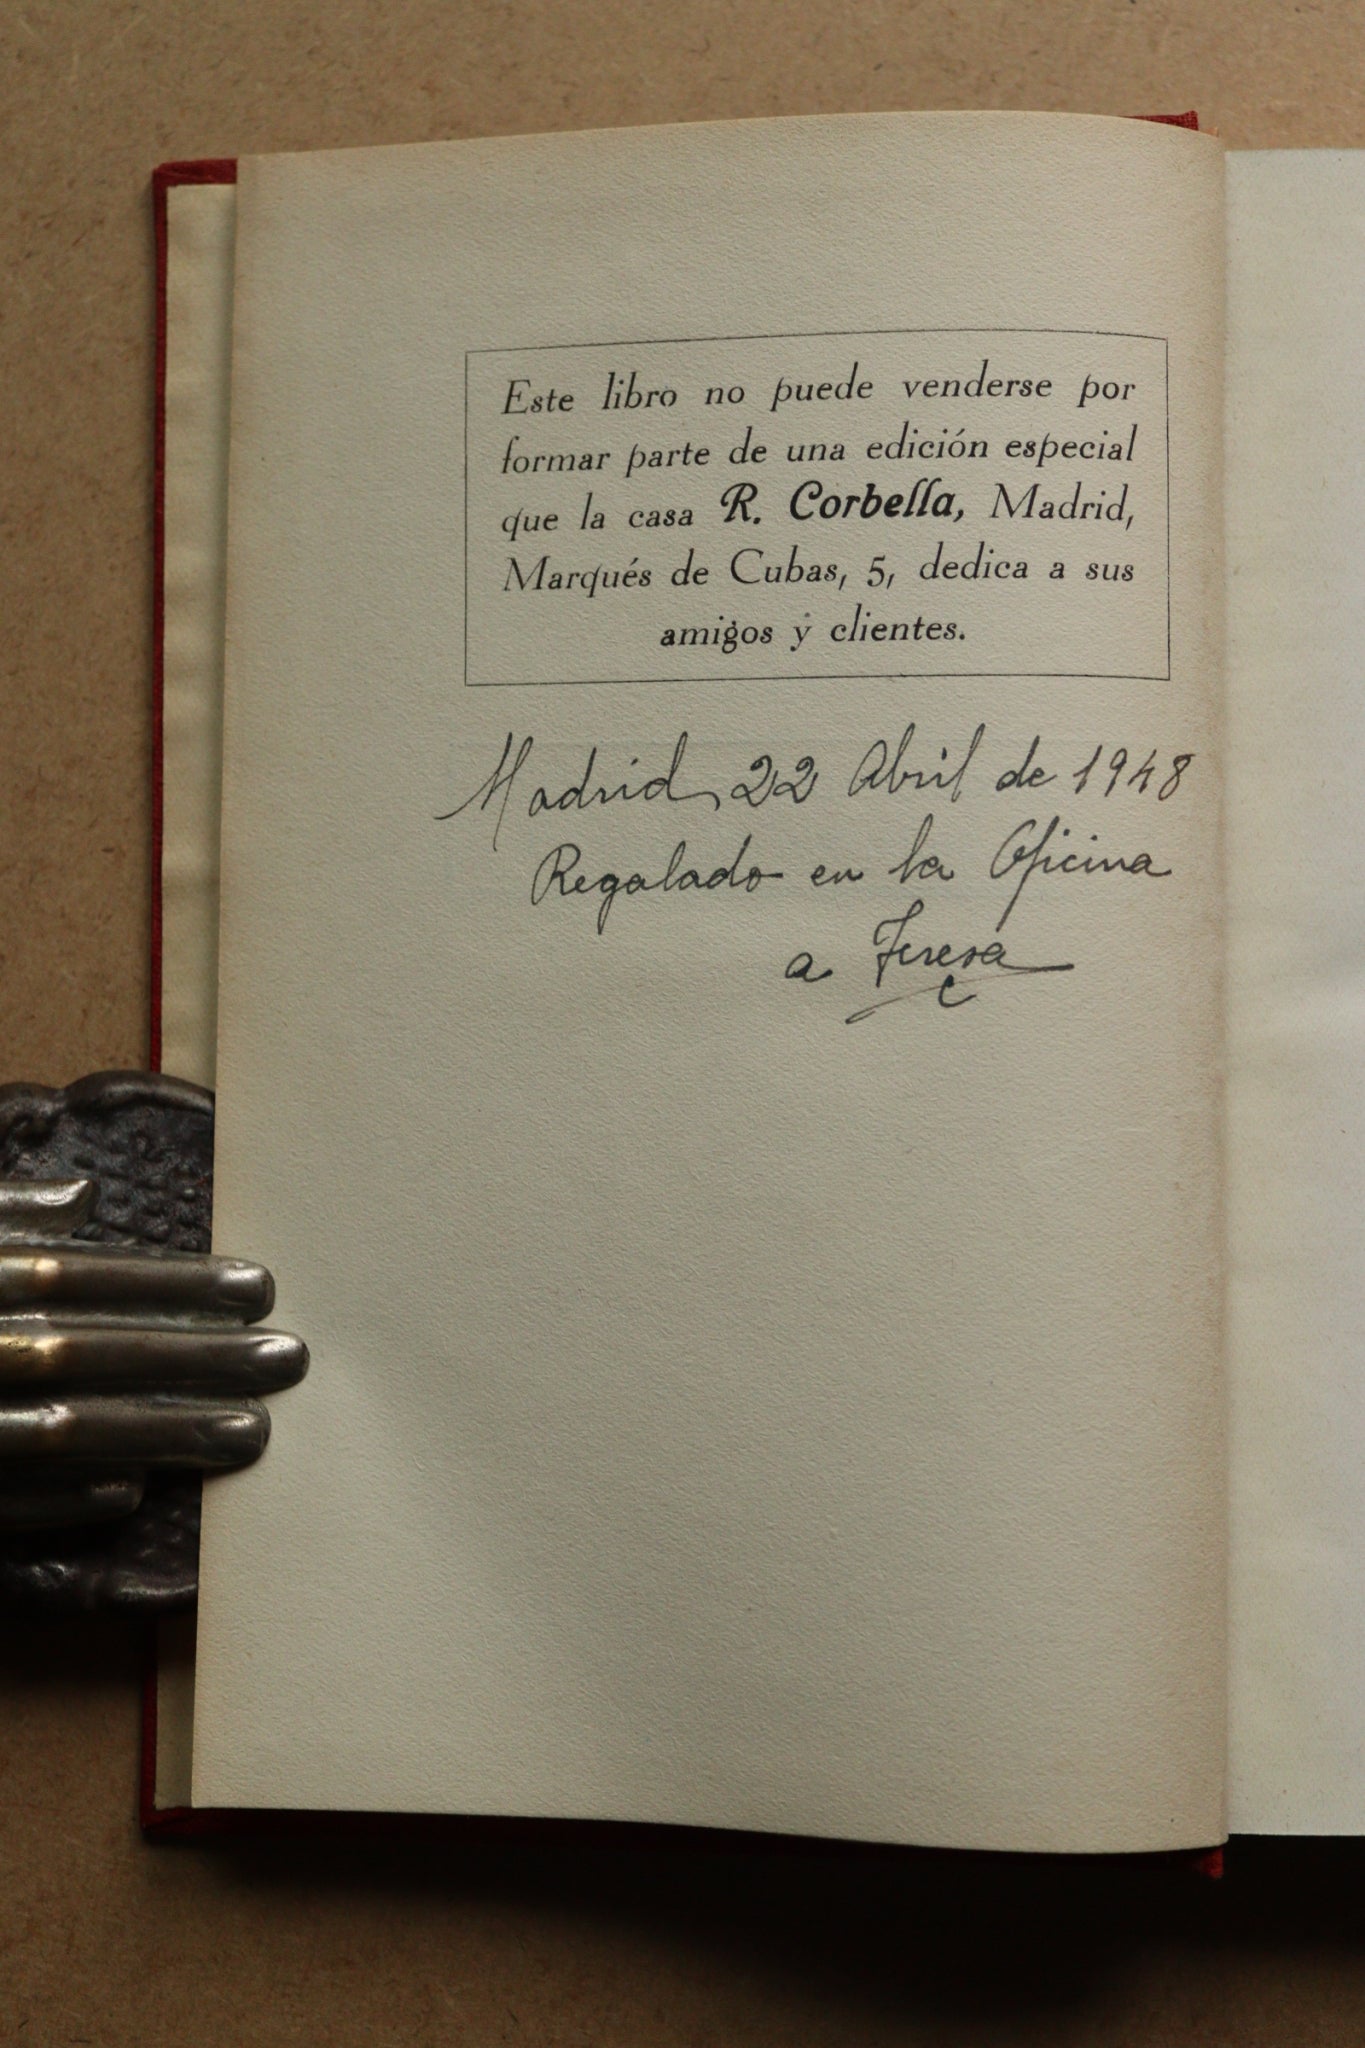 Este libro no puede venderse por
formar parte de una edición especial
que la casa R. Corbella, Madrid,
Marqués de Cubas, 5, dedica a sus
amigos y clientes.
Madrid, 22 Abril de 1948
Regalado en la Oficina
a Teresa